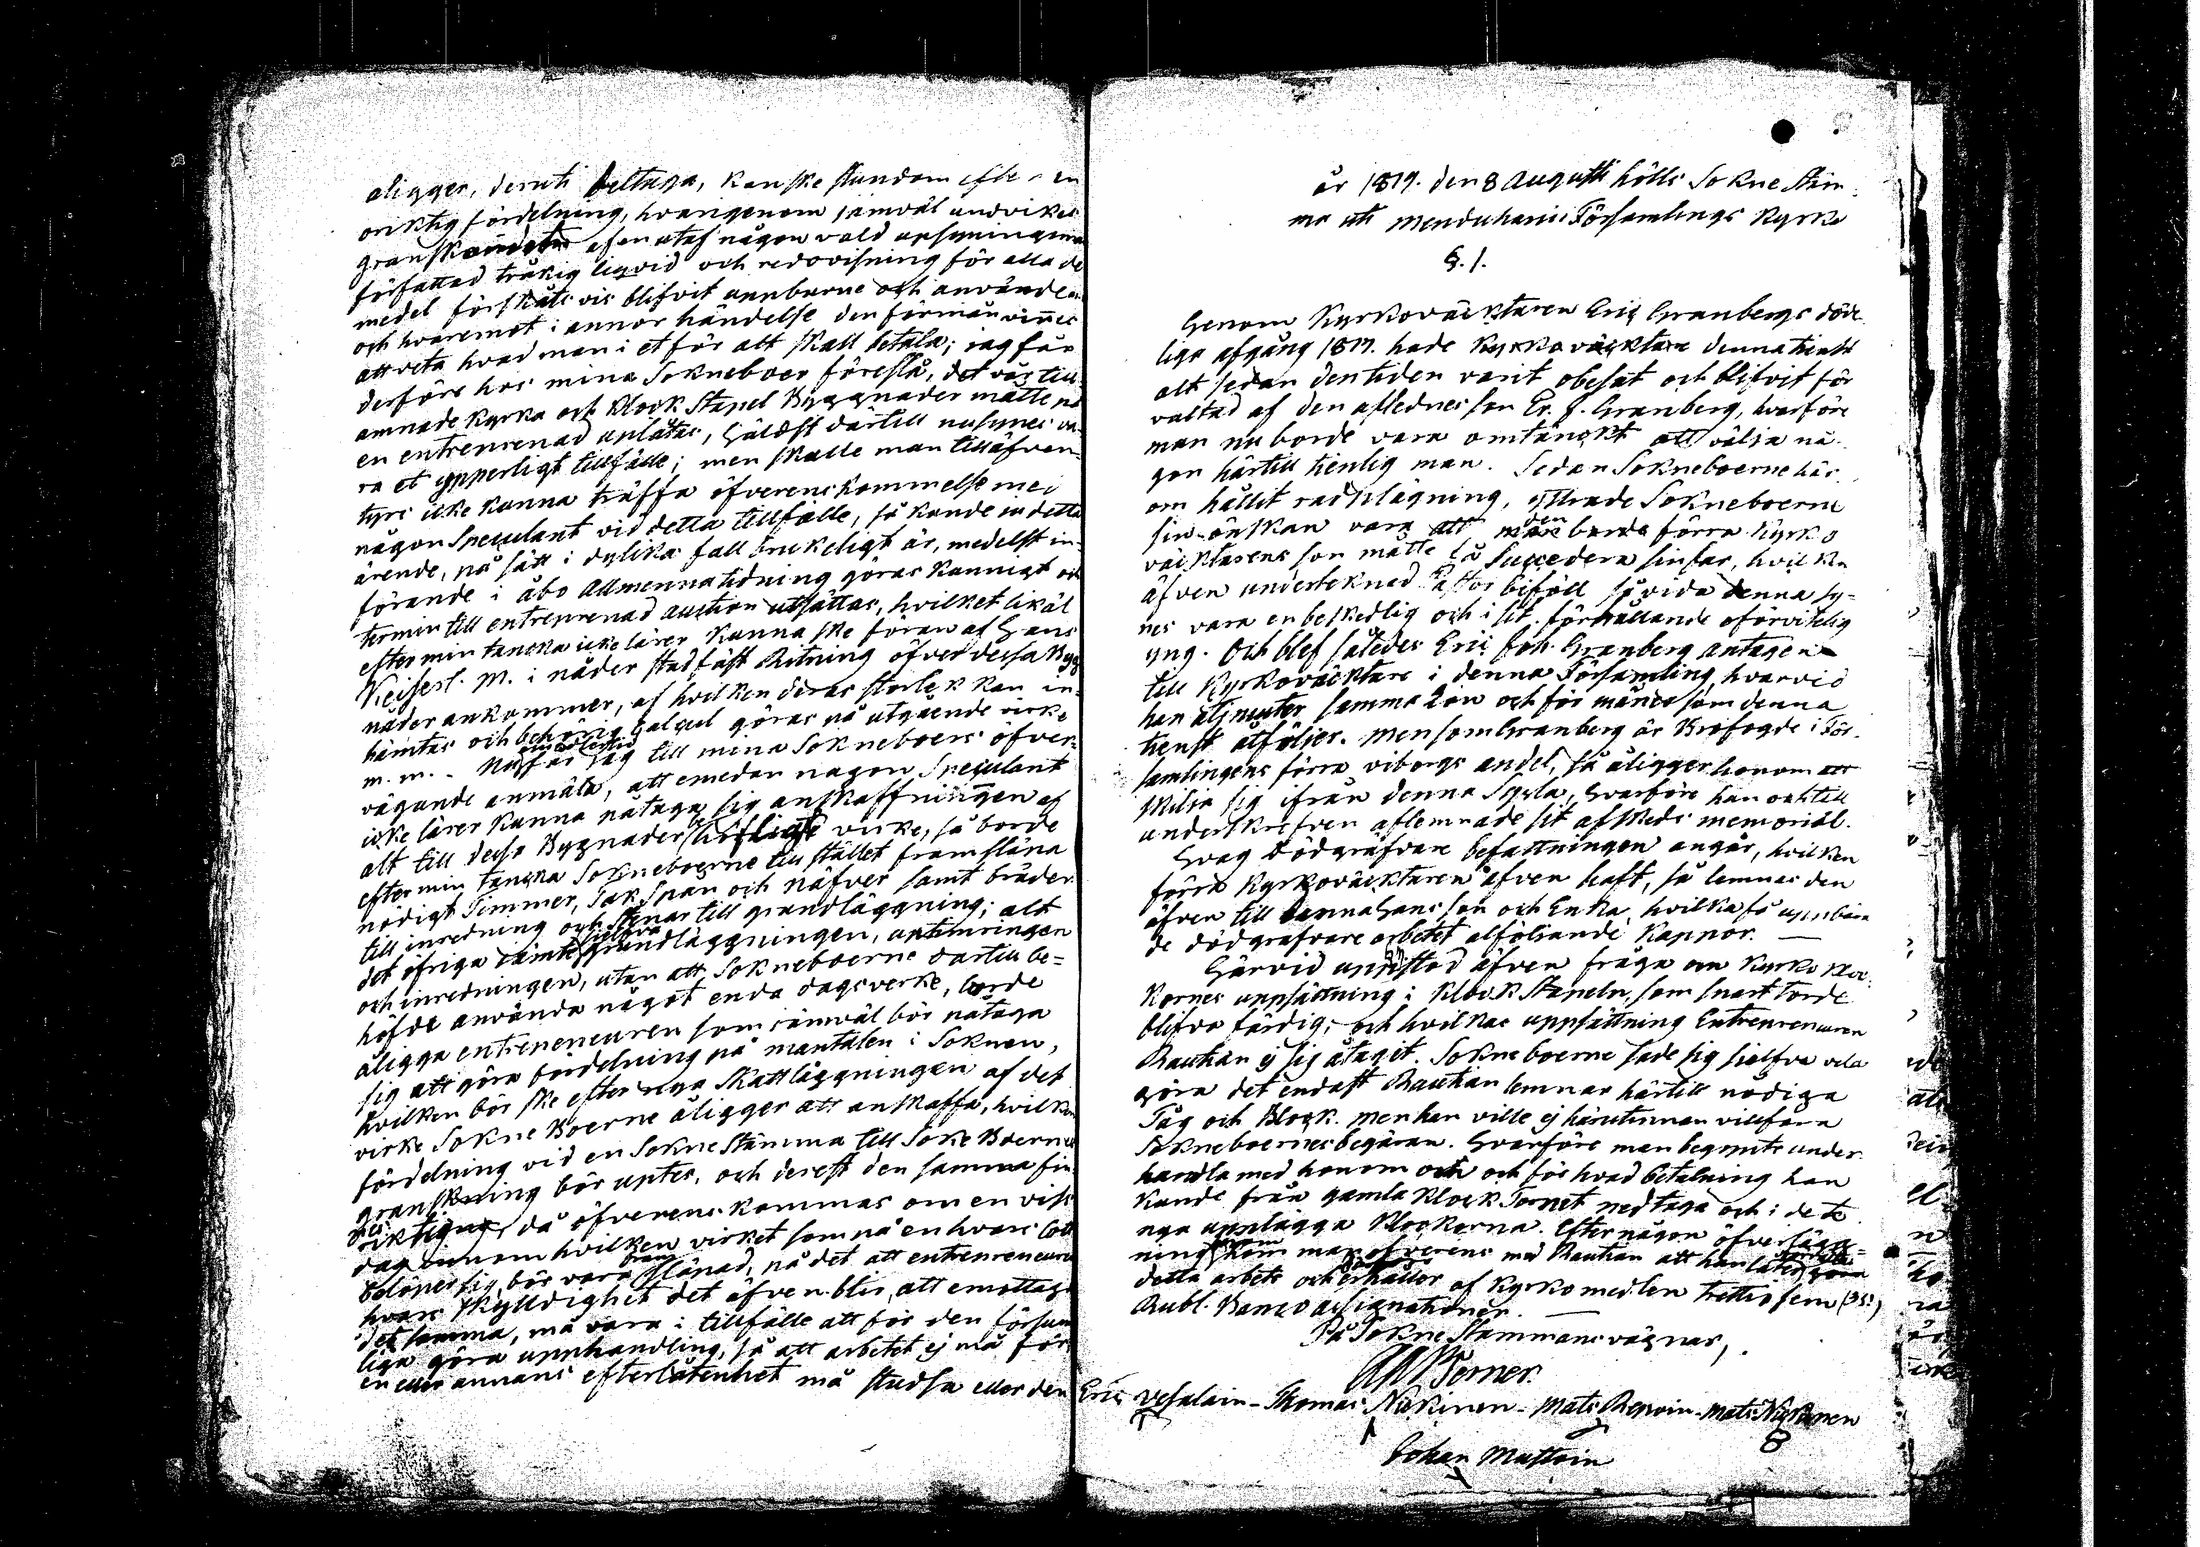 åligger, deruti deltaga, kanske stundom efter en
oriktig fördelning, hvarigenom jämväl undvikes
granskandet af en utaf någon vald upsyningsman
författad tråkig liqvid och redovisning för alla de
medel förskåtsvis blifvit uppburne och använde
och hvaremot i annor händelse den förmån vinnes
att veta hvad man i et för alt skall betala; jag får
derföre hos mina Sokneboer föreslå, det vår till-
ämnade Kyrka och Klock Stapel Byggnader måtte på
en entreprenad uplåtas, hälst därtill nu synes va-
ra et ypperligt tillfälle; men skulle man tilläfven-
tyrs icke kunna träffa öfverenskommelse med
någon Speculant vid detta tillfälle, så kunde ju detta
ärende, på sätt i dylika fall brukeligt är, medelst in-
förande i Åbo Allmenna tidning göras kunnigt och
termin till entreprenad auction utsättas, hvilket likväl
efter min tancka icke lärer kunna ske förän af Hans
Keiserl. M. i nåder stadfäst Ritning öfver dessa Byg
nader ankommer, af hvilken deras storlek kan in-
hämtas och behörig Calcul göras på utgående virke
m. m. Nu får jag till mina Sokneboers öfver-
vägande anmäla, att emedan någon Speculant
icke lärer kunna påtaga sig anskaffningen af
alt till dessa Bygnader virke, så borde
efter min tancka Sokneboerne till stället framsläpa
nödigt Timmer, Tak Spån och Näfver samt bräder
till inredning och Stenar till grundläggning; alt
det öfriga jämte sjelfva grundläggningen, uptimringen
och inredningen, utan att Sokneboerne därtill be-
höfde använda något enda dagsverke, borde
åligga entrepreneuren som jämväl bör påtaga
sig att göra fördelning på mantalen i Soknen,
hvilken bör ske efter nya Skattläggningen af det
virke Sokne Boerne åligger att anskaffa, hvilken
fördelning vid en Sokne Stämma till Sokne Boernes
granskning bör uptes, och derest den samma fin
riktig, då öfverens kommas om en viss
dag innom hvilken virket som på en hvars lott
belöper sig bör vara framsläpad, på det att entrepreneuren
hvars skylldighet det äfven blir, att emottaga
det samma, må vara i tillfälle att för den försum
liga göra upphandling, så att arbetet ej må för
en eller annans efterlåtenhet må studsa eller den
år 1819. den 8 Augusti hölls Sokne Stäm-
ma uti Menduharju Församlings Kyrko
§. 1.
Genom Kyrkoväcktaren Eric Granbergs döde-
liga afgång 1817. hade Kyrkoväcktare denna tienst
alt sedan den tiden varit obesat och blifvit för
valtad af den aflednes son Er. J. Granberg, hvarföre
man nu borde vara omtänckt att välja nå-
gon härtill tienlig man. Sedan Sokneboerne här-
om hållit rådplägning, yttrade Sokneboerne
sin önskan vara att den förra Kyrko
väcktarens son måtte få Succedera sin far, hvilken
äfven undertecknad Pastor biföll så vida denna sy-
nes vara en beskedlig och i sit förhållande oförvitelig
yng. Och blef således Eric Joh. Granberg antagen
till Kyrkoväcktare i denna Församling, hvarvid
han åtnjuter samma Lön och förmåner som denna
tienst åtföljer. Men som Granberg är Brofogde i För-
samlingens förra viborgs andel, så åligger honom att
skilja sig ifrån denna Syssla, hvarföre han ock till
underskrefven aflemnade sit afskeds memorial.
Hvag dödgräfvare befattningen angår, hvilken
förra Kyrkoväcktaren äfven haft, så lemnas den
äfven till denna hans son och Enka, hvilka få uppbära
de dödgräfvare arbetet alföljande Kappor. —
Härvid uppstod äfven fråga om Kyrko Kloc-
kornes uppsättning i Klock Stapeln, som snart torde
blifva färdig, och hvilkas uppsättning Entrepreneuren
Rautian ej sig åtagit. Sokneboerne sade sig sjelfva vela
göra det endast Rautian lemnar härtill nödiga
Tåg och Block. men han ville ej härutinnan villfara
Sokneboernes begäran. Hvarföre man begynte under-
handla med honom och för hvad betalning han
kunde från gamla Klock Tornet nedtaga och i dette
nya upplägga Klockorna. Efter någon öfverlägg-
ning kom man öfverens med Rautian att han låter
detta arbete och erhåller af Kyrko medlen Trettiofem (35)
Rubl. Banco assignationer. —
På Sokne Stämmans vägnar,
Eric Vesalain - Thomas Nickinen - Mats Repoin - Mats Nykänen
Johan Mustoin